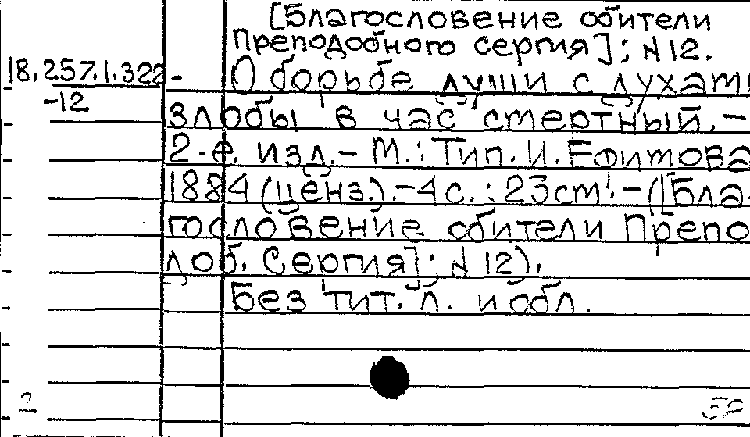 [Благословение обители
Преподобного Сергия]; N 12.
18.257.1.322- О борьбе души с духами
-12
злобы в час смертный.-
2-е изд.- М.: Тип. И. Ефимова
1884 (ценз.).-4с.: 23см.-([Бла-
гословение обители Препо
доб. Сергия]; N 12).
Без тит. л. и обл.
2